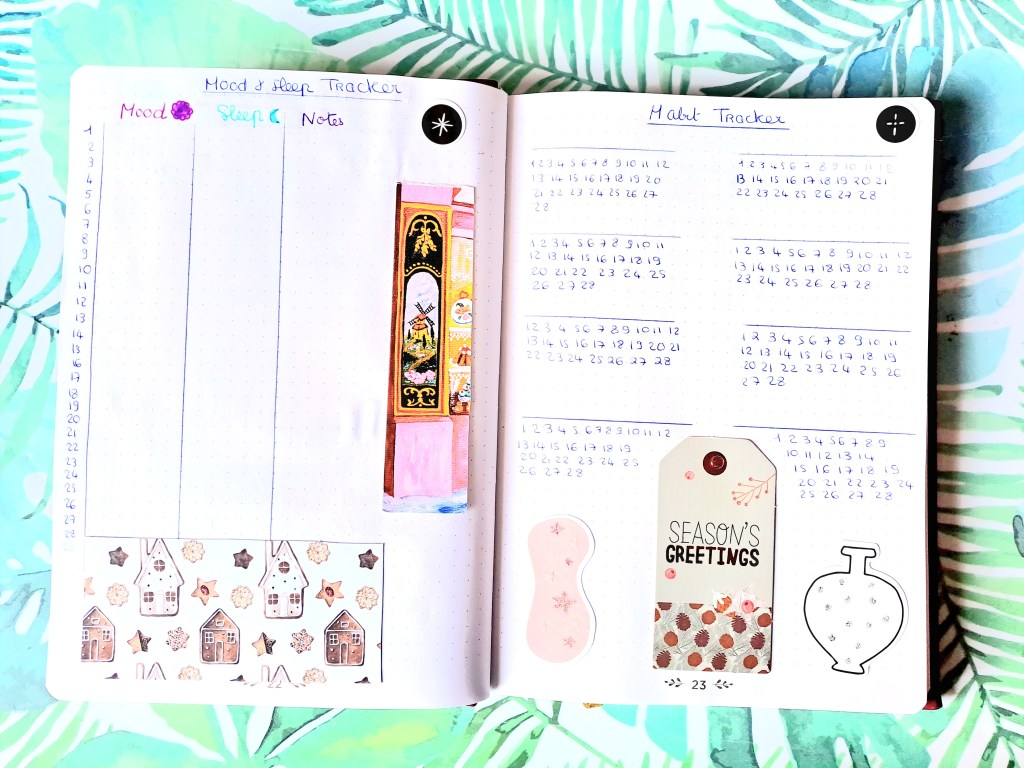 Mood & Sleep Tracker
Mood Sleep Notes
1
2
3
4
5
6
7
8
9
10
11
12
13
14
15
16
17
18
19
20
21
22
23
24
25
26
27
28
22
Habit Tracker
1 2 3 4 5 6 7 8 9 10 11 12
13 14 15 16 17 18 19 20
21 22 23 24 25 26 27
28
1 2 3 4 5 6 7 8 9 10 11 12
13 14 15 16 17 18 19 20 21
22 23 24 25 26 27 28
1 2 3 4 5 6 7 8 9 10 11
12 13 14 15 16 17 18 19
20 21 22 23 24 25
26 27 28
1 2 3 4 5 6 7 8 9 10 11 12
13 14 15 16 17 18 19 20 21 22
23 24 25 26 27 28
1 2 3 4 5 6 7 8 9 10 11 12
13 14 15 16 17 18 19 20 21
22 23 24 25 26 27 28
1 2 3 4 5 6 7 8 9 10 11
12 13 14 15 16 17 18 19
20 21 22 23 24 25 26
27 28
1 2 3 4 5 6 7 8 9 10 11 12
13 14 15 16 17 18 19
20 21 22 23 24 25
26 27 28
1 2 3 4 5 6 7 8 9
10 11 12 13 14
15 16 17 18 19
20 21 22 23 24
25 26 27 28
SEASON'S
GREETINGS
23